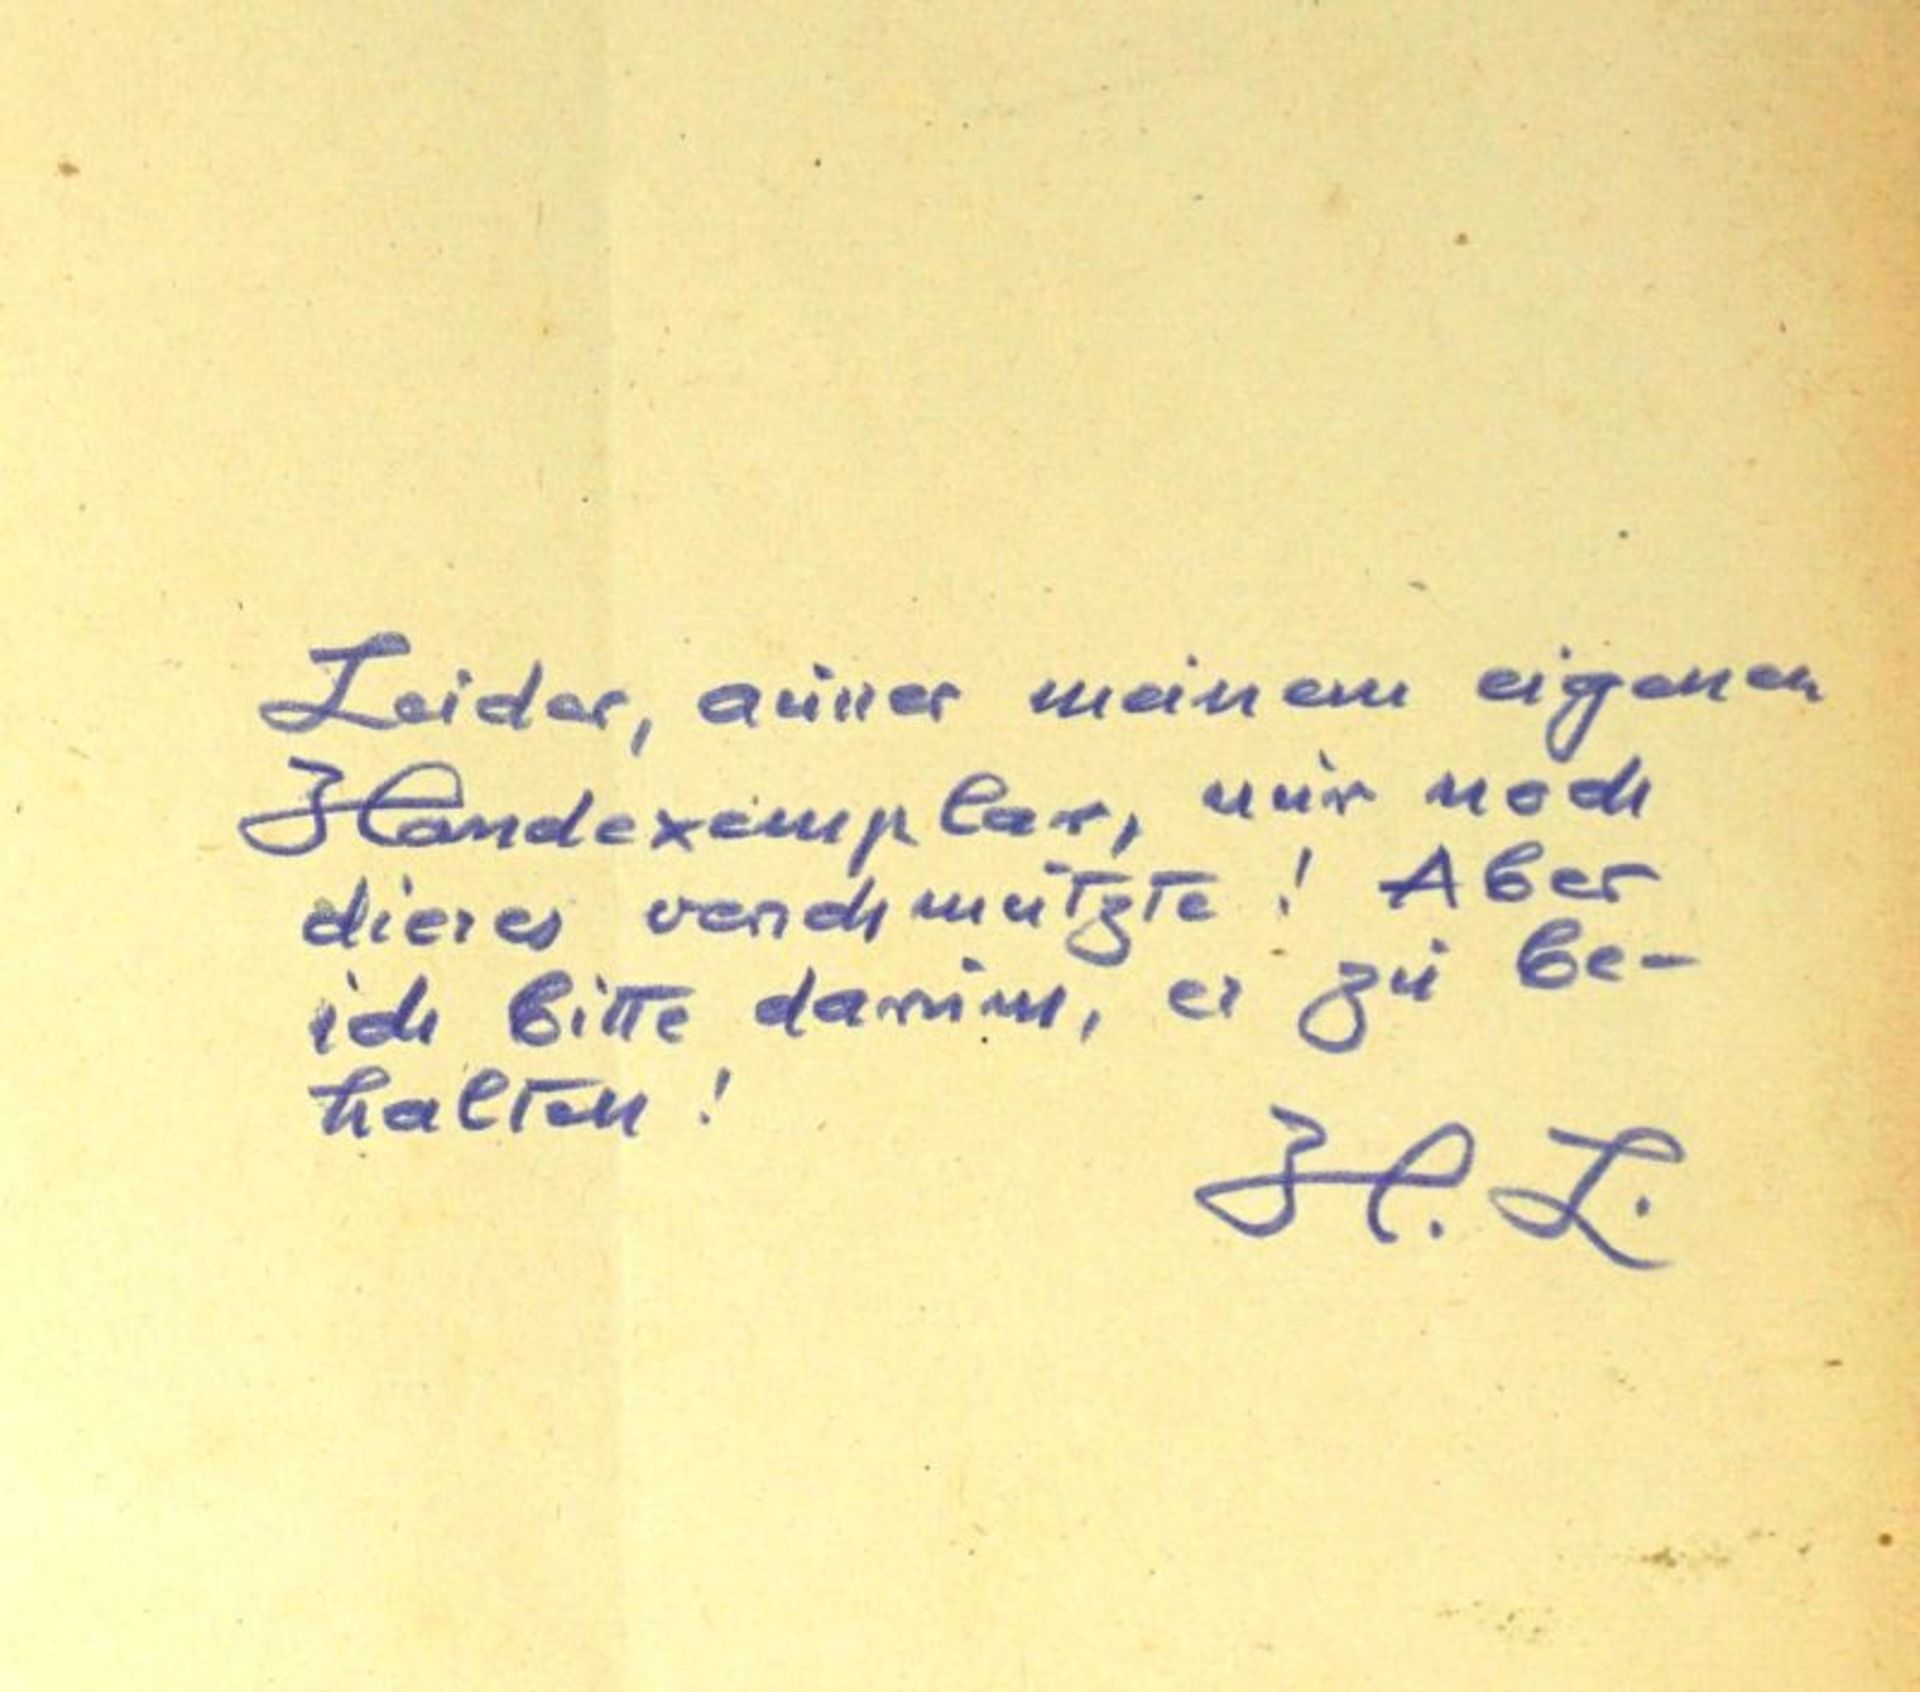 Leider, ausser meinem eigenen
Handexemplar, nur noch
dieses verschmutzte! Aber
ich bitte darum, es zu be-
halten!
H. L.